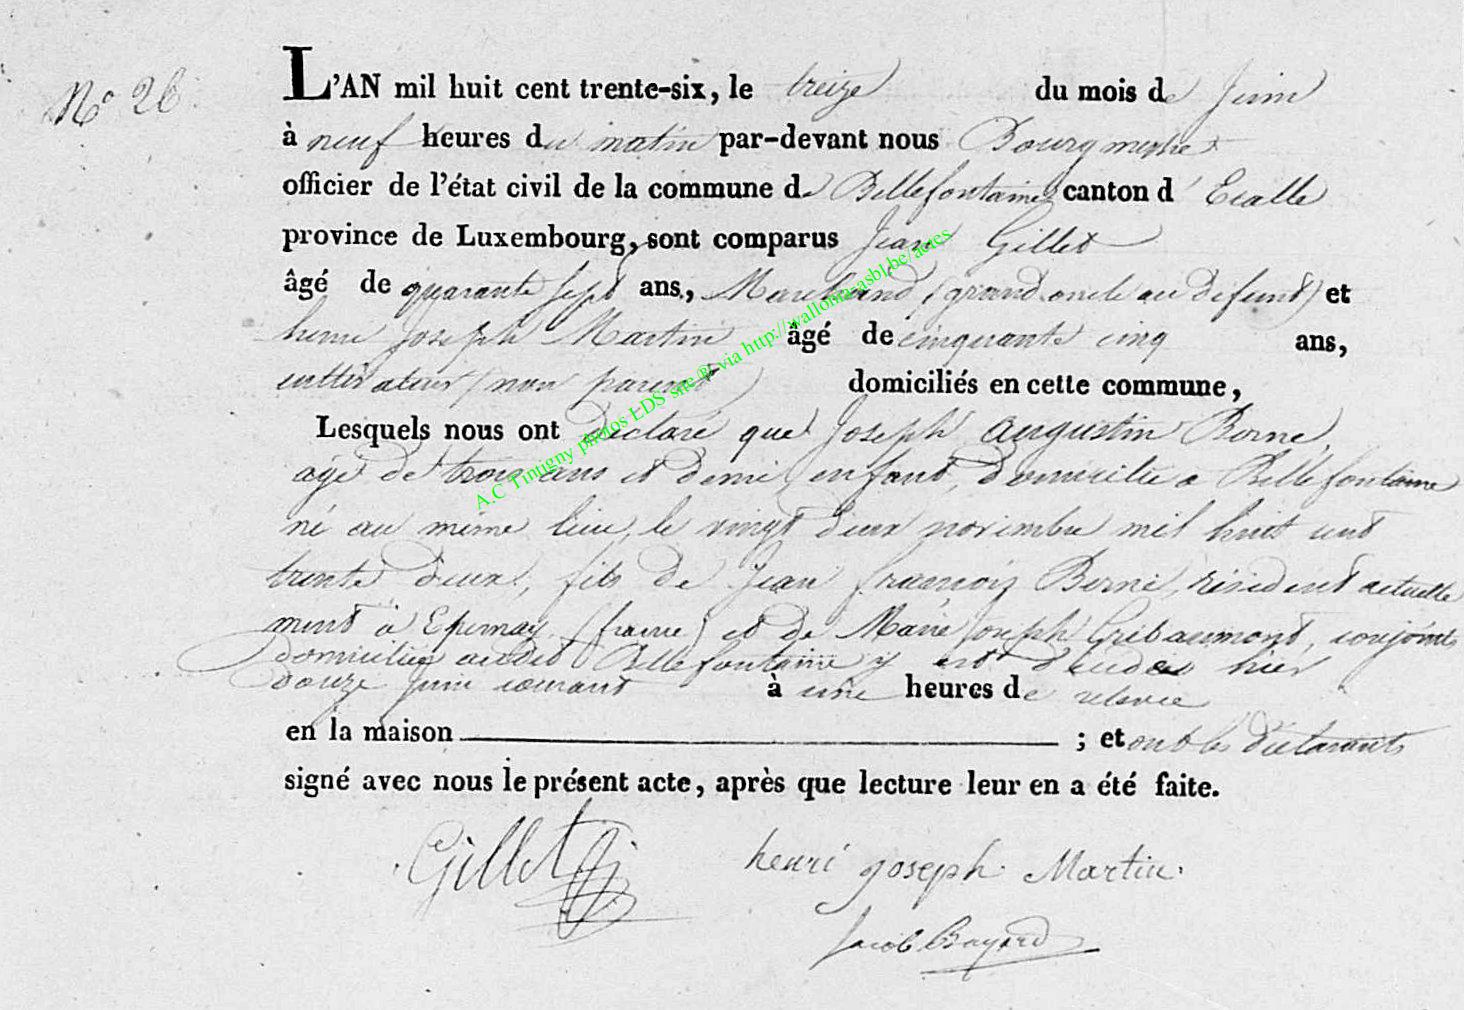 N° 26
L'AN mil huit cent trente-six, le treize du mois de Juin
à neuf heures du matin par-devant nous Bourgmestre
officier de l'état civil de la commune de Bellefontaine canton d'Etalle
province de Luxembourg, sont comparus Jean Gillet
âgé de quarante sept ans, Marchand, (grand oncle au defunt) et
henri Joseph Martin âgé de cinquante cinq ans,
cultivateur (non parent) domiciliés en cette commune,
Lesquels nous ont déclaré que Joseph Augustin Borné,
agé de trois ans et demi, enfant, domicilié a Bellefontaine
né au même lieu, le vingt deux novembre mil huit cent
trente deux, fils de Jean françois Borné, résident actuelle
ment à Epernay (france) et de Marie Joseph Gribaumont, conjoints
domiciliés audit Bellefontaine y est décédé hier
douze juin courant à une heures de relevée
en la maison ; et ont les déclarants
signé avec nous le présent acte, après que lecture leur en a été faite.
Gillet Jj
henri joseph Martin.
Jacob Bayard
A.C Tintigny photos LDS site ® via http://wallonia-asbl.be/actes